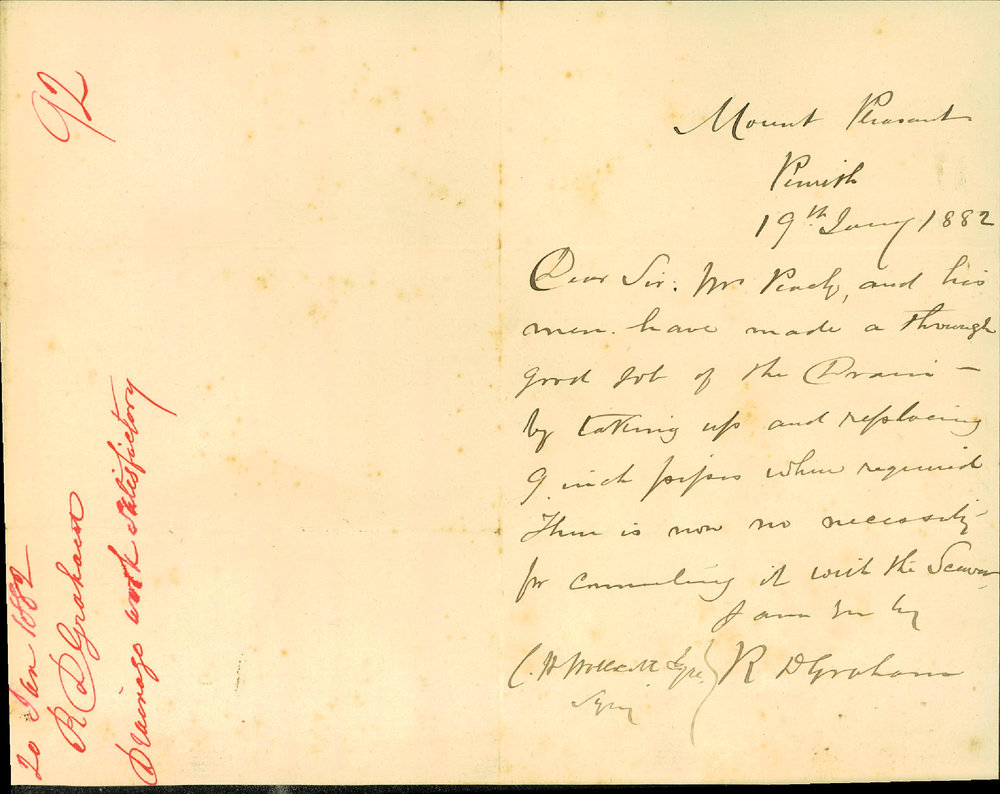 92
20 Jan 1882
R D Graham
Drainage work satisfictory
Mount Pleasant
Penrith
19th Jany 1882
Dear Sir. Mr Peady, and his
men. have made a through
good Job of the Drain –
by taking up and replacing
9 inch pipes where required
There is now no necessity
for connecting it with the
I am Sir
R D Graham
C. H. Esqre